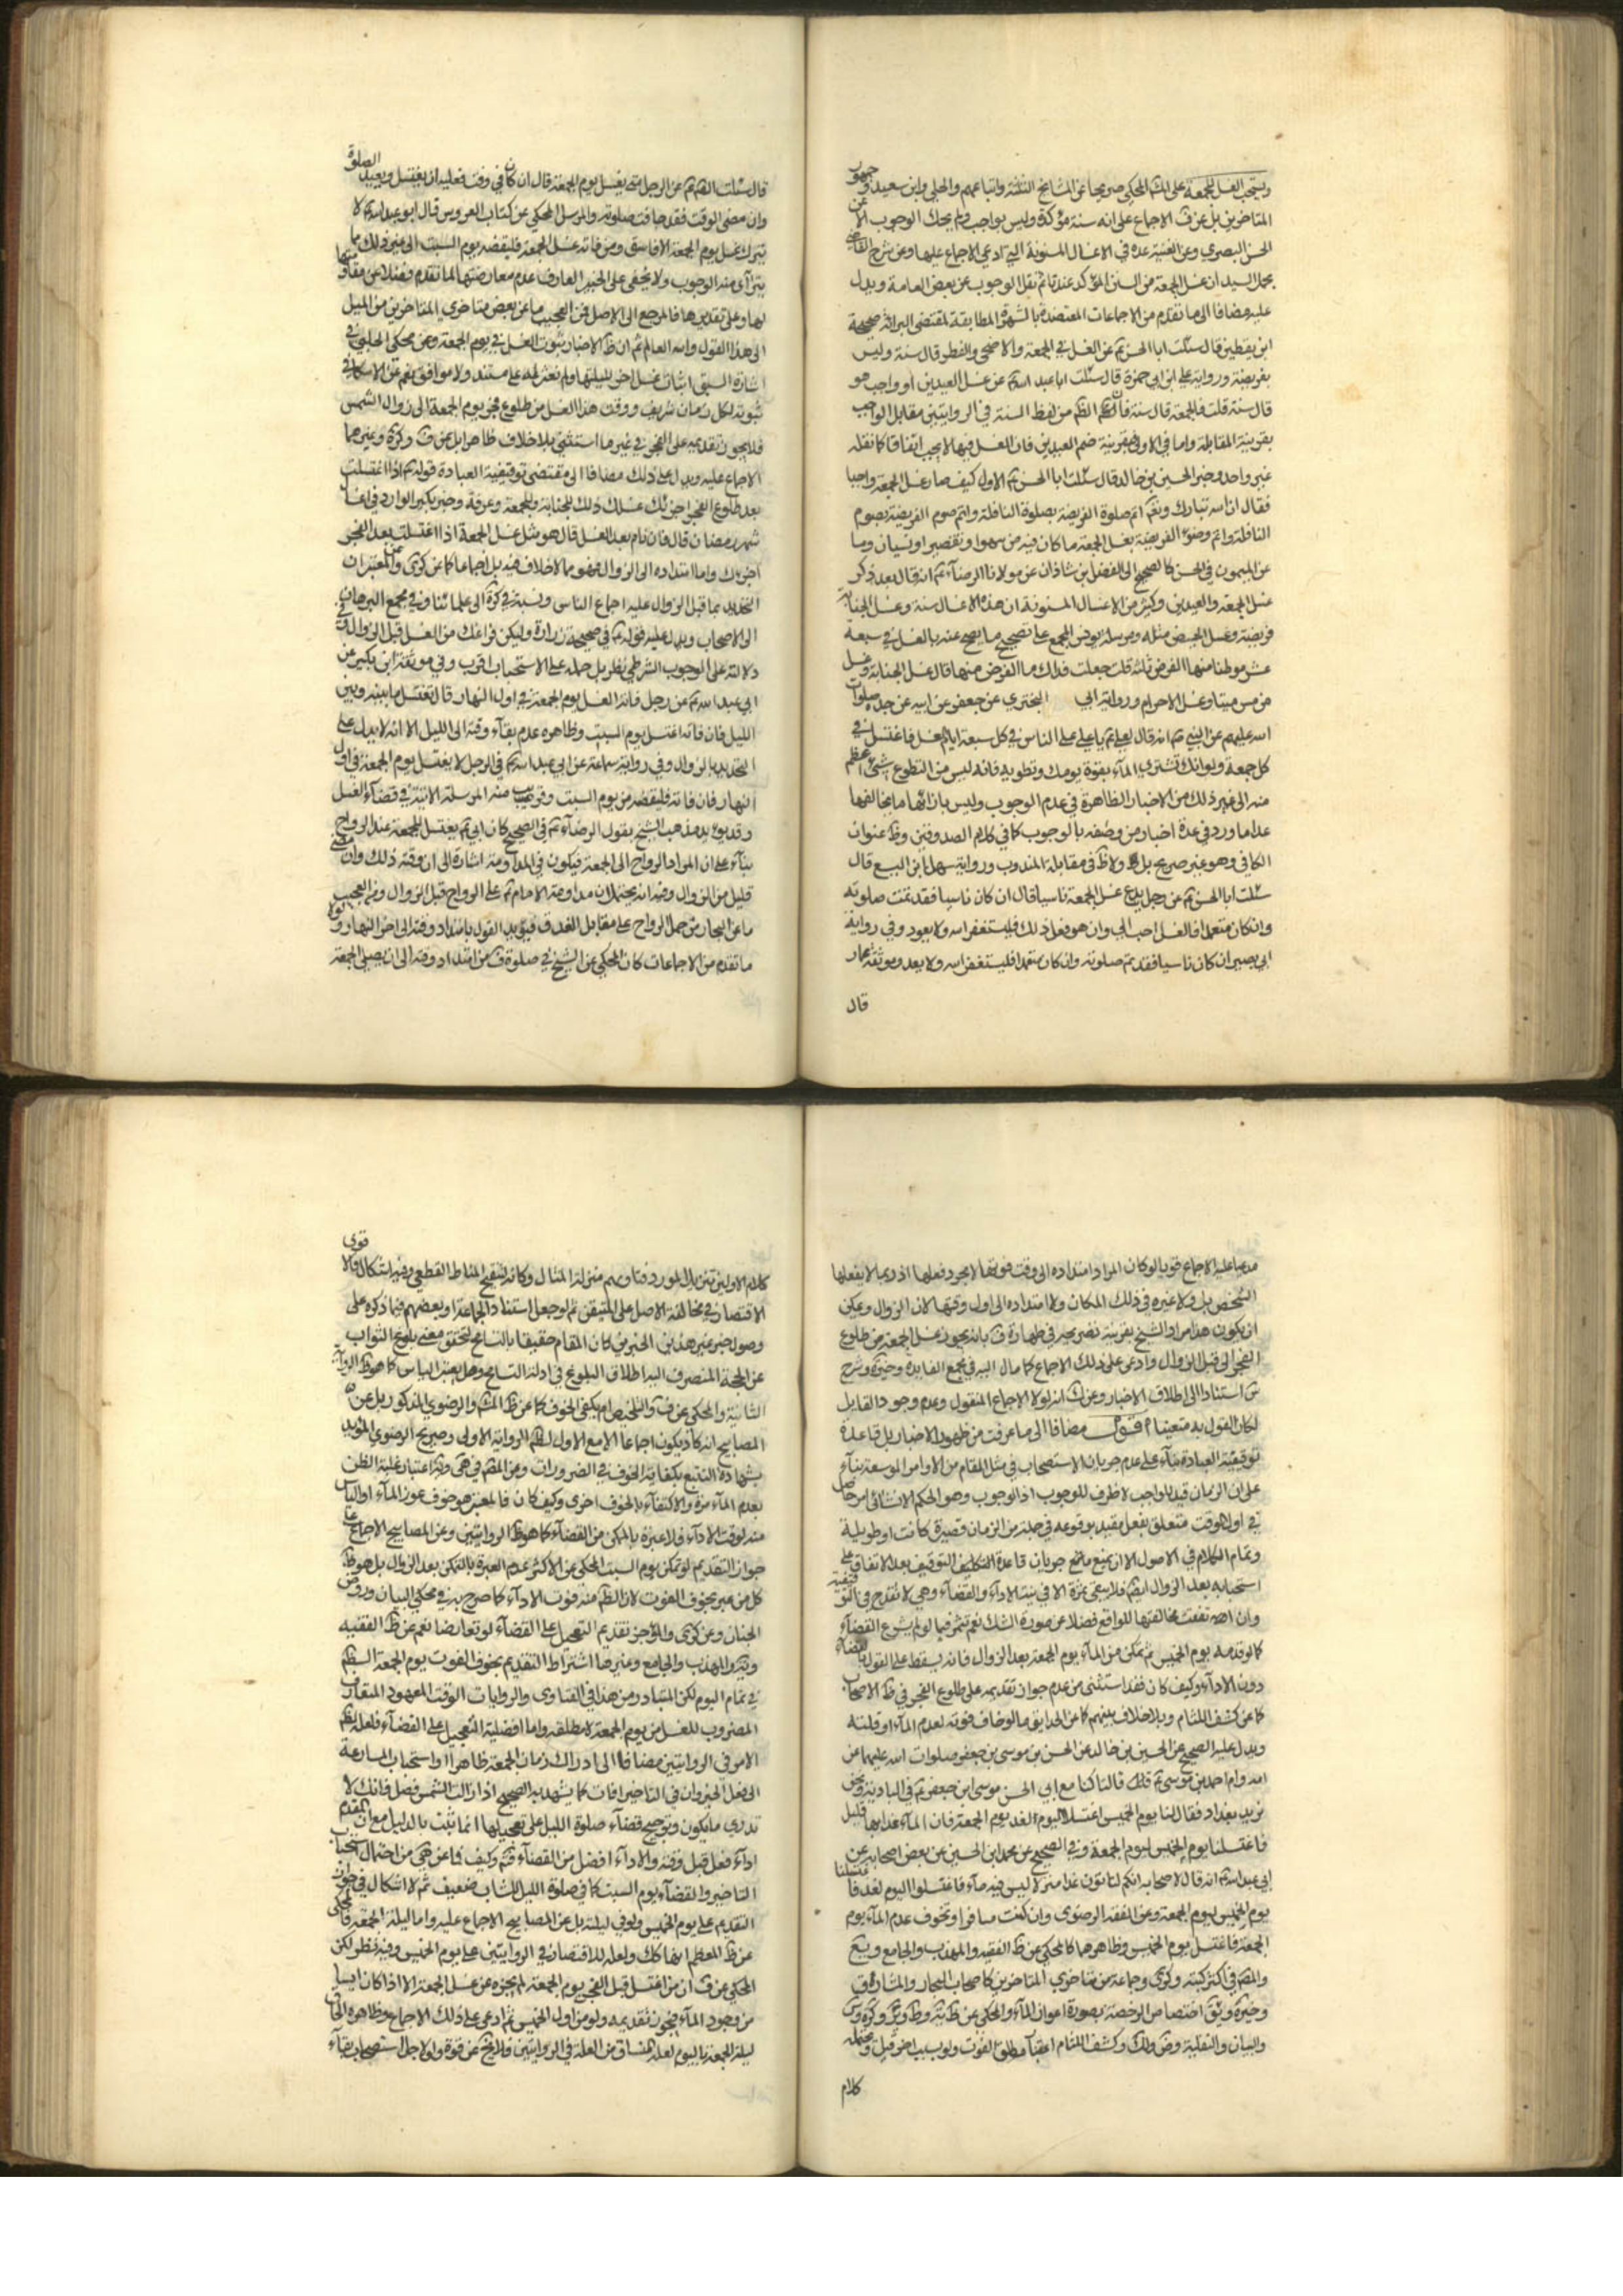 ويستحب الغسل للجمعة على المحكي صريحا عن المشايخ الثلثة واتباعهم والحلي وابن سعيد وجمهور
المتاخرين بل عن ف الاجماع على انه سنة مؤكدة وليس بواجب ولم يحك الوجوب الا عن
الحسن البصري وعن الغنية عده في الاغسال المسنونة التي ادعي الاجماع عليها وعن شرح القاضي
بجمل السيد ان غسل الجمعة من السنن المؤكد عندنا ثم نقل الوجوب عن بعض العامة ويدل
عليه مضافا الى ما تقدم من الاجماعات المعتضدة بالشهرة المطابقة لمقتضى البرائة صحيحة
ابن يقطين قال سئلت ابا الحسن ع عن الغسل في الجمعة والاضحى والفطر قال سنة وليس
بفريضة ورواية علي ابن ابي حمزة قال سئلت ابا عبد الله ع عن غسل العيدين أو واجب هو
قال سنة قلت فالجمعة قال سنة فان الظم من لفظ السنة في الروايتين مقابل الواجب
بقرينة المقابلة واما في الاولى فبقرينة ضم العيدين فان الغسل فيها لا يجب اتفاقا كما نقله
غير واحد وخبر الحسين بن خالد قال سئلت ابا الحسن ع الاول كيف صار غسل الجمعة واجبا
فقال ان الله تبارك وتع اتم صلوة الفريضة بصلوة النافلة واتم صوم الفريضة بصوم
النافلة واتم وضوء الفريضة بغسل الجمعة ما كان فيه من سهو او تقصير او نسيان وما
عن الميمون في الحسن كالصحيح الى الفضل ابن شاذان عن مولانا الرضاء ع انه قال بعد ذكر
غسل الجمعة والعيدين وكثير من الاغسال المسنونة ان هذه الاغسال سنة وغسل الجنابة
فريضة وغسل الحيض مثله ومرسلة يونس المجمع على تصحيح ما يصح عنه بالغسل في سبعة
عشر موطنا منها الفرض ثلثة قلت جعلت فداك ما الفرض منها قال غسل الجنابة وغسل
من مس ميتا وغسل الاحرام ورواية ابي البختري عن جعفر عن ابيه عن جده صلوات
الله عليهم عن النبي ص انه قال لعلي ع يا علي على الناس في كل سبعة ايام الغسل فاغتسل في
كل جمعة ولو انك تشتري الماء بقوة يومك وتطويه فانه ليس من التطوع شيئ اعظم
منه الى غير ذلك من الاخبار الظاهرة في عدم الوجوب وليس بازائها ما يخالفها
عدا ما ورد في عدة اخبار من وصفه بالوجوب كما في كلام الصدوقين وظ عنوان
الكافي وهو غير صريح بل ولا ظ في مقابلة المندوب ورواية سهل بن اليسع قال
سئلت ابا الحسن ع عن رجل يدع غسل الجمعة ناسيا قال ان كان ناسيا فقد تمت صلوته
وان كان متعمدا فالغسل احب الي وان هو فعل ذلك فليستغفر الله ولا يعود وفي رواية
ابي بصير ان كان ناسيا فقد تم صلوته وان كان متعمدا فليستغفر الله ولا يعد وموثقة عمار
قال
قال سئلت الصم ع عن الرجل متى يغسل يوم الجمعة قال ان كان في وقت فعليه ان يغتسل ويعيد الصلوة
وان مضى الوقت فقد جازت صلوته والمرسل المحكي عن كتاب العروس قال ابو عبد الله ع لا
يترك غسل يوم الجمعة الا فاسق ومن فاته غسل الجمعة فليقضه يوم السبت الى غير ذلك مما
يترآى منه الوجوب ولا يخفى على الخبير العارف عدم معارضتها لما تقدم وفضلا عن مقاومتها
لها وعلى تقديرها فالمرجع الى الاصل فمن العجيب ما عن بعض متاخري المتاخرين من الميل
الى هذا القول والله العالم ثم ان ظ الاخبار ثبوت الغسل في يوم الجمعة وعن محكي الحلبي في
اشارة السبق اثبات غسل اخر لليلتها ولم نعثر له على مستند ولا موافق نعم عن الاسكافي
ثبوته لكل زمان شريف ووقت هذا الغسل من طلوع فجر يوم الجمعة الى زوال الشمس
فلا يجوز تقديمه على الفجر في غير ما استثنى بلا خلاف ظاهرا بل عن ف وكرة وغيرهما
الاجماع عليه ويدل على ذلك مضافا الى مقتضى توقيفية العبادة قوله ع اذا اغتسلت
بعد طلوع الفجر اجزئك غسلك ذلك للجنابة والجمعة وعرفة وخبر بكير الوارد في اغسال
شهر رمضان قال فان نام بعد الغسل قال هو مثل غسل الجمعة اذا اغتسلت بعد الفجر
اجزئك واما امتداده الى الزوال فهو مما لا خلاف فيه بل اجماعا كما عن كرى وعن المعتبر ان
التحديد بما قبل الزوال عليه اجماع الناس ونسبه في كرة الى علمائنا وفي مجمع البرهان
الى الاصحاب ويدل عليه قوله ع في صحيحة زرارة وليكن فراغك من الغسل قبل الزوال وفي
دلالته على الوجوب الشرطي نظر بل حمله على الاستحباب اقرب وفي موثقة ابن بكير عن
ابي عبد الله ع عن رجل فاته الغسل يوم الجمعة في اول النهار قال يغتسل ما بينه وبين
الليل فان فاته اغتسل يوم السبت وظاهره عدم بقاء وقته الى الليل الا انه لا يدل على
التحديد بالزوال وفي رواية سماعة عن ابي عبد الله ع في الرجل لا يغتسل يوم الجمعة في اول
النهار فان فاته فليقضه من يوم السبت وقريب منه المرسلة الاتية في قضاء الغسل
وقد يؤيد مذهب الشيخ بقول الرضاء ع في الصحيح كان ابي ع يغتسل للجمعة عند الرواح
بناء على ان المراد الرواح الى الجمعة فيكون في المداومة اشارة الى ان وقته ذلك وان مضى
قليل من الزوال وفيه انه يحتمل ان مداومة الامام ع على الرواح قبل الزوال ومن العجيب
ما عن البحار من حمل الرواح على مقابل الغدو فيؤيد القول بامتداد وقته الى اخر النهار
ما تقدم من الاجماعات كان المحكي عن الشيخ في صلوة ف من امتداد وقته الى ان يصلي الجمعة
مدعيا عليه الاجماع قويا لو كان المراد امتداده الى وقت فوتها لا بمجرد فعلها اذ ربما لا يفعلها
الشخص بل ولا غيره في ذلك المكان ولا امتداده الى اول وقتها لان الزوال ويمكن
ان يكون هذا مراد الشيخ بقرينة تصريحه في طهارة ف بانه يجوز غسل الجمعة من طلوع
الفجر الى قبل الزوال وادعى على ذلك الاجماع كما مال اليه في مجمع الفايدة وخيرة وشرح
استنادا الى اطلاق الاخبار وعن ك انه لولا الاجماع المنقول وعدم وجود القايل
لكان القول به متعينا مضافا الى ما عرفت من ظهور الاخبار بل قاعدة
توقيفية العبادة بناء على عدم جريان الاستصحاب في مثل المقام من الاوامر الموسعة بناء
على ان الزمان قيد للواجب لا ظرف للوجوب اذ الوجوب وهو الحكم الانشائي امر حاصل
في اول الوقت متعلق بفعل مقيد بوقوعه في جملة من الزمان قصيرة كانت او طويلة
وتمام الكلام في الاصول الا ان يمنع مانع جريان قاعدة التكليف التوقيف بعد الاتفاق على
استحبابه بعد الزوال ايضا فلا يبقى ثمرة الا في نية الاداء والقضاء وهي لا تقدح في التوقيفية
وان اتفقت مخالفتها للواقع فضلا عن صورة الشك نعم تثمر فيما لو لم يشرع القضاء
كما لو قدمه يوم الخميس ثم تمكن من الماء يوم الجمعة بعد الزوال فانه يسقط على القول بالقضاء
دون الاداء وكيف كان فقد استثنى من عدم جواز تقديمه على طلوع الفجر في ظ الاصحاب
كما عن كشف اللثام وبلا خلاف بينهم كما عن الحدايق ما لو خاف فوته لعدم الماء او قلته
ويدل عليه الصحيح عن الحسين بن خالد عن الحسن بن موسى بن جعفر صلوات الله عليهما عن
امه وام احمد بن موسى ع قالتا كنا مع ابي الحسن موسى ابن جعفر ع في البادية ونحن
نريد بغداد فقال لنا يوم الخميس اغتسلا اليوم لغد يوم الجمعة فان الماء غدا بها قليل
فاغتسلنا يوم الخميس ليوم الجمعة وفي الصحيح عن محمد ابن الحسين عن بعض اصحابه عن
ابي عبد الله ع انه قال لاصحابه انكم لتاتون غدا منزلا ليس فيه ماء فاغتسلوا اليوم لغد فاغتسلنا
يوم الخميس ليوم الجمعة وعن الفقه الرضوى وان كنت مسافرا وتخوفت عدم الماء يوم
الجمعة فاغتسل يوم الخميس وظاهرهما كالمحكي عن ظ الفقيه والمهذب والجامع
والمصم في اكثر كتبه وكرى وجماعة من متاخري المتاخرين كاصحاب البحار والمشارق
وخيرة اختصاص الرخصة بصورة اعواز الماء والمحكي عن
والبيان والنفلية وكشف اللثام اعتبار مطلق الفوت ولو بسبب اخر قيل ويحتمله
كلام
كلام الاولين بتنزيل المورد فتاويهم منزلة المثال وكانه لتنقيح المناط القطعي وفيه اشكال والاقوى
الاقتصار في مخالفة الاصل على المتيقن ثم لو جعل استناد الجماعة او بعضهم فيما ذكره على
وصول خبر غير هذين الخبرين كان المقام حقيقا بالتسامح لتحقق معنى بلوغ الثواب
عن الحجة المنصرف اليه اطلاق البلوغ في ادلة التسامح وهل يعتبر الياس كما هو ظ الرواية
الثانية والمحكي عن ف والتلخيص ام يكفي الخوف كما عن ظ المشم والرضوي المذكور بل عن
المصابيح انه كاد يكون اجماعا الا مع الاول لظم الرواية الاولى وصريح الرضوي المؤيد
بشهادة التتبع بكفاية الخوف في الضرورات وعن المصم في هى اعتبار غلبة الظن
بعدم الماء مرة والاكتفاء بالخوف اخرى وكيف كان فالمعتبر هو خوف عوز الماء او الياس
منه لوقت الاداء فلا عبرة بالتمكن من القضاء كما هو ظ الروايتين وعن المصابيح الاجماع على
جواز التقديم لو تمكن يوم السبت المحكي عن الاكثر عدم العبرة بالتمكن بعد الزوال بل هو ظ
كل من عبر بخوف الفوت لان الظم منه فوت الاداء كما صرح به في محكي البيان وروض
الجنان وعن كرى والموجز تقديم التعجيل على القضاء لو تعارضا نعم عن ظ الفقيه
والمهذب والجامع وغيرها اشتراط التقديم بخوف الفوت يوم الجمعة
في تمام اليوم لكن المتبادر من هذا في الفتاوى والروايات الوقت المعهود المتعارف
المضروب للغسل من يوم الجمعة لا مطلقه واما افضلية التعجيل على القضاء فلعله لظم
الامر في الروايتين مضافا الى ادراك زمان الجمعة ظاهرا واستحباب المسارعة
الى فعل الخير وان في التاخير افات كما يشهد به الصحيح اذا زالت الشمس فصل فانك لا
تدري ما يكون وترجيح قضاء صلوة الليل على تعجيلها انما ثبت بالدليل مع ان المقدم
اداء فعل قبل وقته والاداء افضل من القضاء فتم وكيف فما عن هى من احتمال استحباب
التاخير والقضاء يوم السبت كما في صلوة الليل للشاب ضعيف ثم لا اشكال في جواز
التقديم على يوم الخميس ولو في ليلته بل عن المصابيح الاجماع عليه واما ليلة الجمعة فالمحكي
عن ظ المعظم انها كك ولعله للاقتصار في الروايتين على يوم الخميس وفيه نظر لكن
المحكي عن ف ان من اغتسل قبل الفجر يوم الجمعة لم يجزه عن غسل الجمعة الا اذا كان ايسا
من وجود الماء فيجوز تقديمه ولو من اول الخميس ثم ادعى على ذلك الاجماع وظاهره الحاق
ليلة الجمعة باليوم لعله المنساق من العلة في الروايتين فالارجح عن قوة ولو لاجل استصحاب بقاء